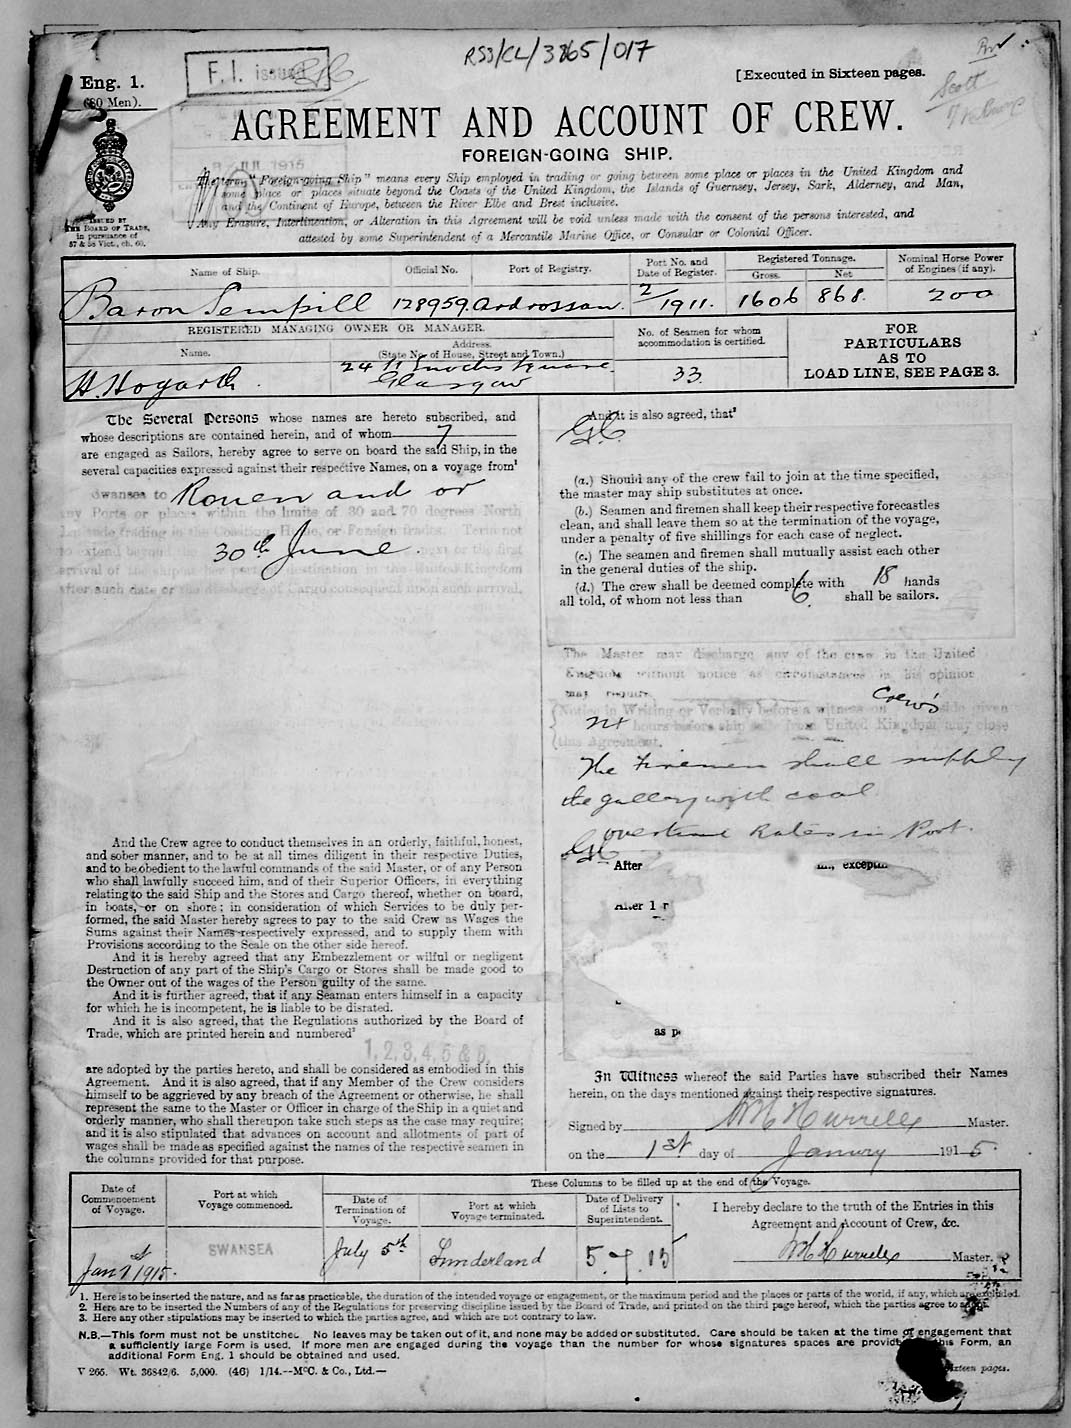 RSS/CL/3865/017
Eng. 1.
(60 Men).
F. I. issued
[Executed in Sixteen pages.
Scott
AGREEMENT AND ACCOUNT OF CREW.
FOREIGN-GOING SHIP.
JUL 1915
The term "Foreign-going Ship" means every Ship employed in trading or going between some place or places in the United Kingdom and
some place or places situate beyond the Coasts of the United Kingdom, the Islands of Guernsey, Jersey, Sark, Alderney, and Man,
and the Continent of Europe, between the River Elbe and Brest inclusive.
Any Erasure, Interlineation, or Alteration in this Agreement will be void unless made with the consent of the persons interested, and
attested by some Superintendent of a Mercantile Marine Office, or Consular or Colonial Officer.
ISSUED BY
THE BOARD OF TRADE,
in pursuance of
57 & 58 Vict., ch. 60.
Name of Ship.
Official No.
Port of Registry.
Port No. and
Date of Register.
Registered Tonnage.
Gross.
Net
Nominal Horse Power
of Engines (if any).
Baron Sempill
128959.
Ardrossan.
2/1911.
1606
868.
200
REGISTERED MANAGING OWNER OR MANAGER.
Name.
Address.
(State No. of House, Street and Town.)
No. of Seamen for whom
accommodation is certified.
FOR
PARTICULARS
AS TO
LOAD LINE, SEE PAGE 3.
H. Hogarth.
24 St Enochs Square.
Glasgow
33
The Several Persons whose names are hereto subscribed, and
whose descriptions are contained herein, and of whom 7
are engaged as Sailors, hereby agree to serve on board the said Ship, in the
several capacities expressed against their respective Names, on a voyage from¹
Swansea to Rouen and or
any Ports or places within the limits of 30 and 70 degrees North
Latitude trading in the Coasting, Home, or Foreign trades. Term not
to extend beyond the 30th June. next or the first
arrival of the ship at her port of destination in the United Kingdom
after such date or the discharge of Cargo consequent upon such arrival.
And the Crew agree to conduct themselves in an orderly, faithful, honest,
and sober manner, and to be at all times diligent in their respective Duties,
and to be obedient to the lawful commands of the said Master, or of any Person
who shall lawfully succeed him, and of their Superior Officers, in everything
relating to the said Ship and the Stores and Cargo thereof, whether on board,
in boats, or on shore; in consideration of which Services to be duly per-
formed, the said Master hereby agrees to pay to the said Crew as Wages the
Sums against their Names respectively expressed, and to supply them with
Provisions according to the Scale on the other side hereof.
And it is hereby agreed that any Embezzlement or wilful or negligent
Destruction of any part of the Ship's Cargo or Stores shall be made good to
the Owner out of the wages of the Person guilty of the same.
And it is further agreed, that if any Seaman enters himself in a capacity
for which he is incompetent, he is liable to be disrated.
And it is also agreed, that the Regulations authorized by the Board of
Trade, which are printed herein and numbered²
1, 2, 3, 4, 5 & 6,
are adopted by the parties hereto, and shall be considered as embodied in this
Agreement. And it is also agreed, that if any Member of the Crew considers
himself to be aggrieved by any breach of the Agreement or otherwise, he shall
represent the same to the Master or Officer in charge of the Ship in a quiet and
orderly manner, who shall thereupon take such steps as the case may require;
and it is also stipulated that advances on account and allotments of part of
wages shall be made as specified against the names of the respective seamen in
the columns provided for that purpose.
And it is also agreed, that³
(a.) Should any of the crew fail to join at the time specified,
the master may ship substitutes at once.
(b.) Seamen and firemen shall keep their respective forecastles
clean, and shall leave them so at the termination of the voyage,
under a penalty of five shillings for each case of neglect.
(c.) The seamen and firemen shall mutually assist each other
in the general duties of the ship.
(d.) The crew shall be deemed complete with 18 hands
all told, of whom not less than 6. shall be sailors.
The Master may discharge any of the crew in the United
Kingdom without notice as circumstances in his opinion
may require
Notice in Writing or Verbally before a witness on Crew's side given
24 hours before ship from United Kingdom may close
this Agreement.
The Firemen shall supply
the galley with coal
overtime Rates in Port.
After
excepting
After 1
as p
In Witness whereof the said Parties have subscribed their Names
herein, on the days mentioned against their respective signatures.
Signed by Master.
on the 1st day of January 1915
Date of
Commencement
of Voyage.
Port at which
Voyage commenced.
These Columns to be filled up at the end of the Voyage.
Date of
Termination of
Voyage.
Port at which
Voyage terminated.
Date of Delivery
of Lists to
Superintendent.
I hereby declare to the truth of the Entries in this
Agreement and Account of Crew, &c.
Master.
Jan 1st 1915.
SWANSEA
July 5th
Sunderland
5.7.15
1. Here is to be inserted the nature, and as far as practicable, the duration of the intended voyage or engagement, or the maximum period and the places or parts of the world, if any, which are excluded.
2. Here are to be inserted the Numbers of any of the Regulations for preserving discipline issued by the Board of Trade, and printed on the third page hereof, which the parties agree to adopt.
3. Here any other stipulations may be inserted to which the parties agree, and which are not contrary to law.
N.B.—This form must not be unstitched. No leaves may be taken out of it, and none may be added or substituted. Care should be taken at the time of engagement that
a sufficiently large Form is used. If more men are engaged during the voyage than the number for whose signatures spaces are provided in this Form, an
additional Form Eng. 1 should be obtained and used.
V 265. Wt. 36842/6. 5,000. (46) 1/14.—McC. & Co., Ltd.—
Sixteen pages.